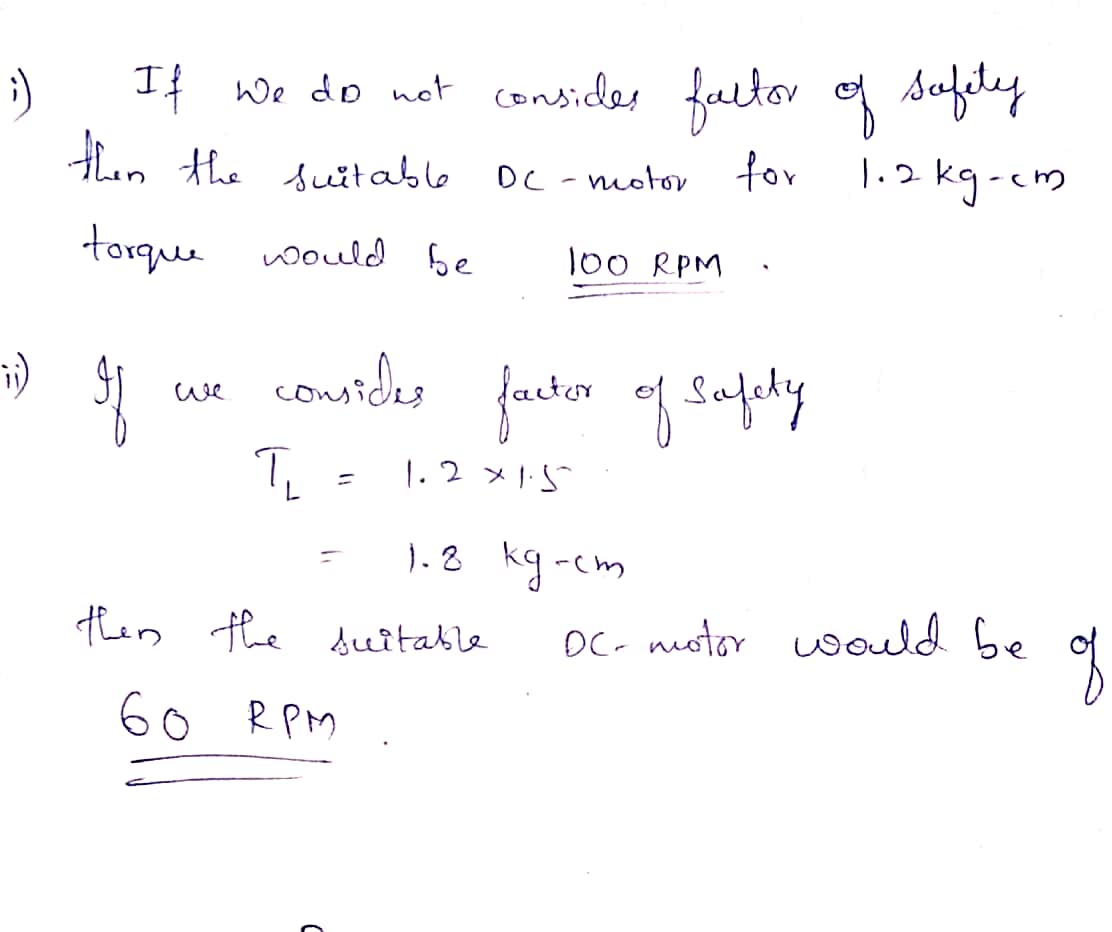 i) If we do not consider factor of safety
then the suitable DC-motor for 1.2 kg-cm
torque would be 100 RPM.
ii) If we consider factor of safety
T_L = 1.2 × 1.5
= 1.8 kg-cm
then the suitable DC-motor would be of
60 RPM.